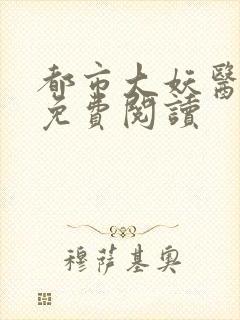 都市大妖醫
免費閱讀
穆薩基奧